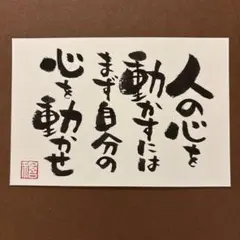 人の心を
動かすには
まず自分の
心を動かせ